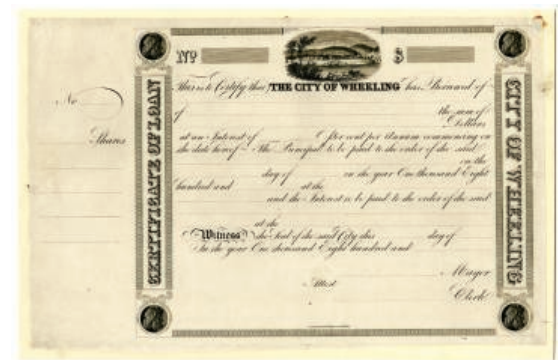 No
Shares
CERTIFICATE OF LOAN
No $
This is to Certify that THE CITY OF WHEELING has Borrowed of
of the sum of
Dollars
at an Interest of per cent per Annum commencing on
the date hereof The Principal to be paid to the order of the said
on the
day of in the year One thousand Eight
hundred and at the
and the Interest to be paid to the order of the said
at the
Witness the Seal of the said City this day of
In the year One thousand Eight hundred and
Mayor
Attest
Clerk
CITY OF WHEELING